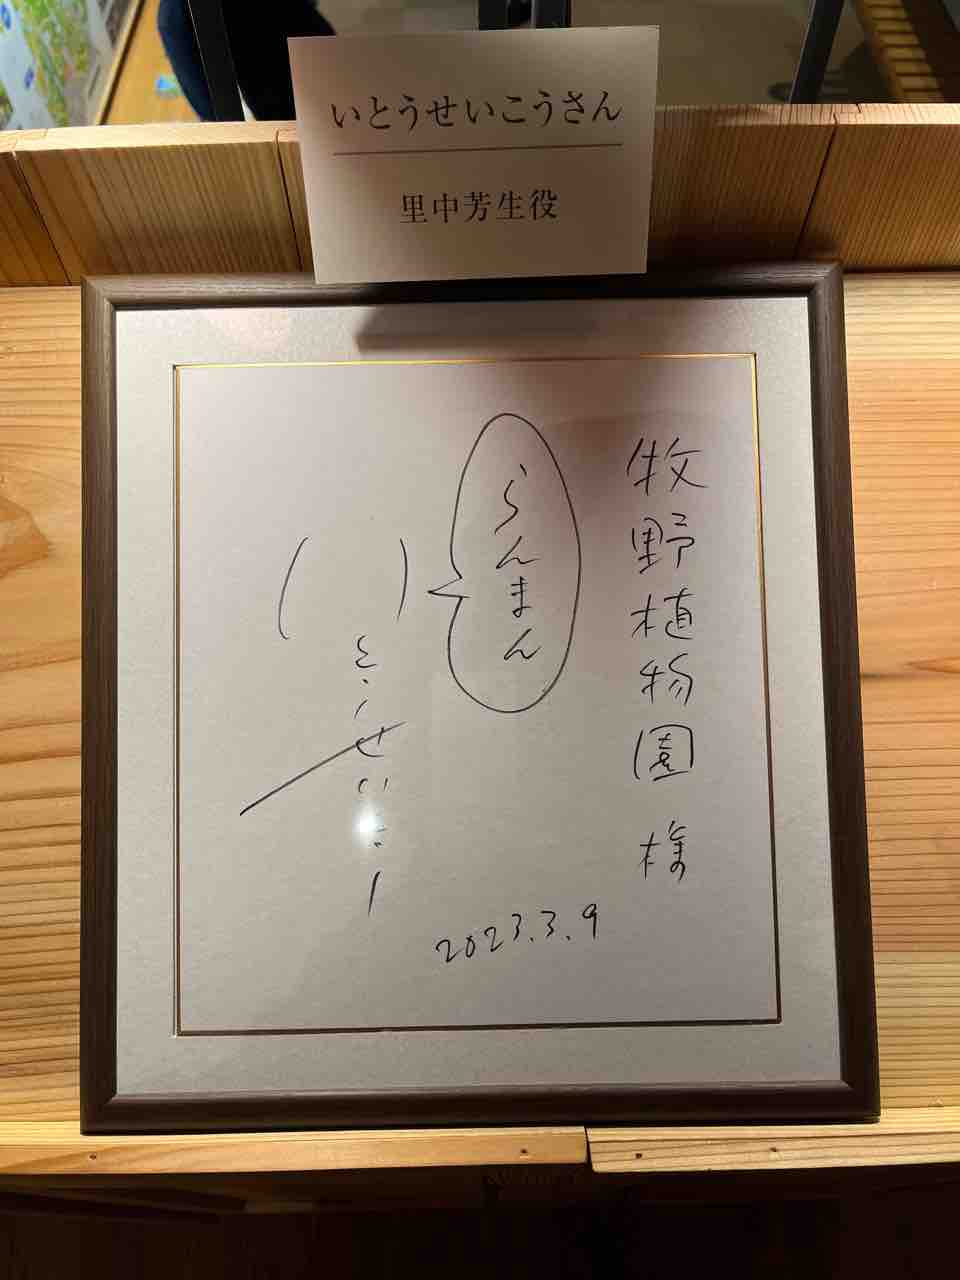 いとうせいこうさん
里中芳生役
牧野植物園 様
らんまん
いとうせいこう
2023.3.9